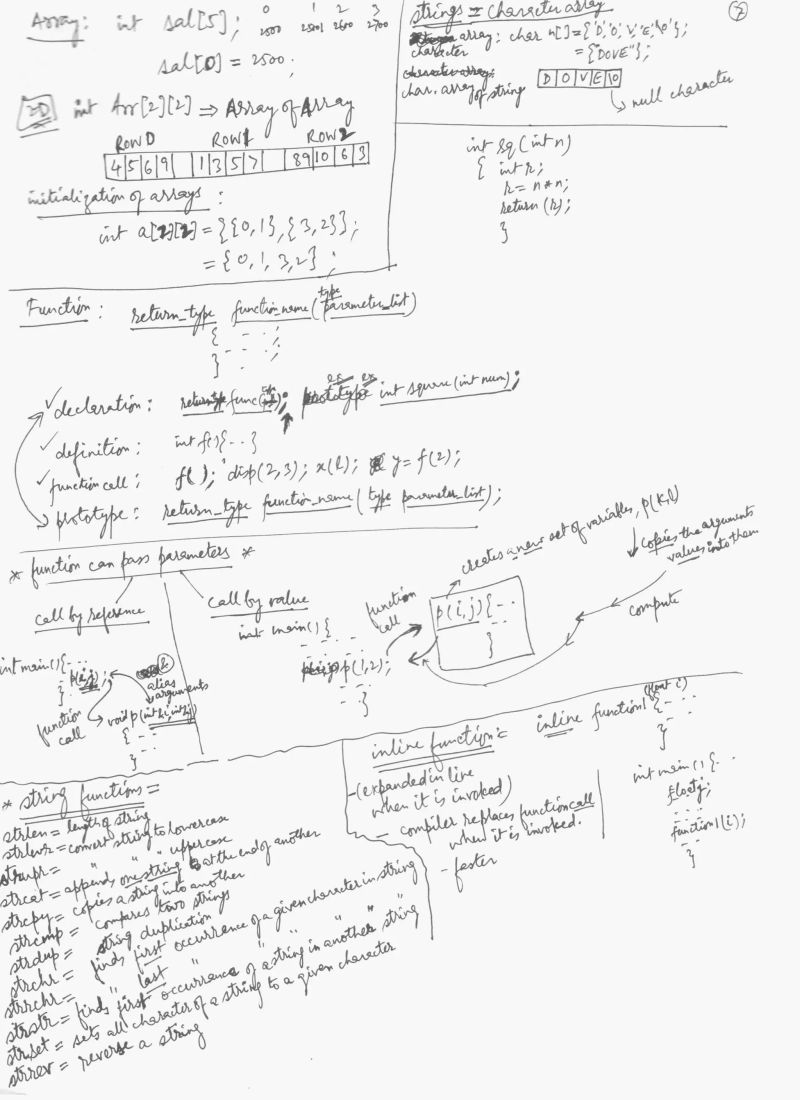 Array: int sal[5]; 0 1 2 3
2500 2501 2600 2700
sal[0] = 2500;
2D int Arr[2][2] ⇒ Array of Array
ROW0 ROW1 ROW2
4 5 6 9 1 3 5 7 89 10 6 3
initialization of arrays :
int a[2][2] = {{0,1},{3,2}};
= {0, 1, 3, 2} ;
strings = character array
7
character array: char n[] = {'D','O','V','E','\0'};
= {"DOVE"};
char. array of string
D O V E \0
null character
int sq(int n)
{ int r;
r = n*n;
return (r);
}
Function: return_type function_name(type parameter_list)
{ - - ;
- - - ;
} - - ;
✓ declaration: return type func( ); ex ex int square(int num);
✓ definition: int f(){- -}
✓ function call: f( ); disp(2,3); x(l); y = f(2);
prototype: return_type function_name(type parameter_list);
* function can pass parameters *
call by reference call by value
int main(){ - - -
p(i,j);
} - -
function call
&
alias arguments
void p(int &i, int &j)
{ - -
}
int main(){
p(1,2);
}
function call
p(i,j){ - -
}
creates a new set of variables, p(k,l)
copies the arguments
values into them
compute
inline function: =
-(expanded in line
when it is invoked)
- compiler replaces function call
when it is invoked.
- faster
inline function1(float i)
{ - -
}
int main(){ - -
float j;
function1(i);
}
* string functions =
strlen = length of string
strlwr = convert string to lowercase
strupr = " " " uppercase
strcat = appends one string at the end of another
strcpy = copies a string into another
strcmp = compares two strings
strdup = string duplication
strchr = finds first occurrence of a given character in string
strrchr = " last " " " " "
strstr = finds first occurrence of a string in another string
strset = sets all character of a string to a given character
strrev = reverse a string